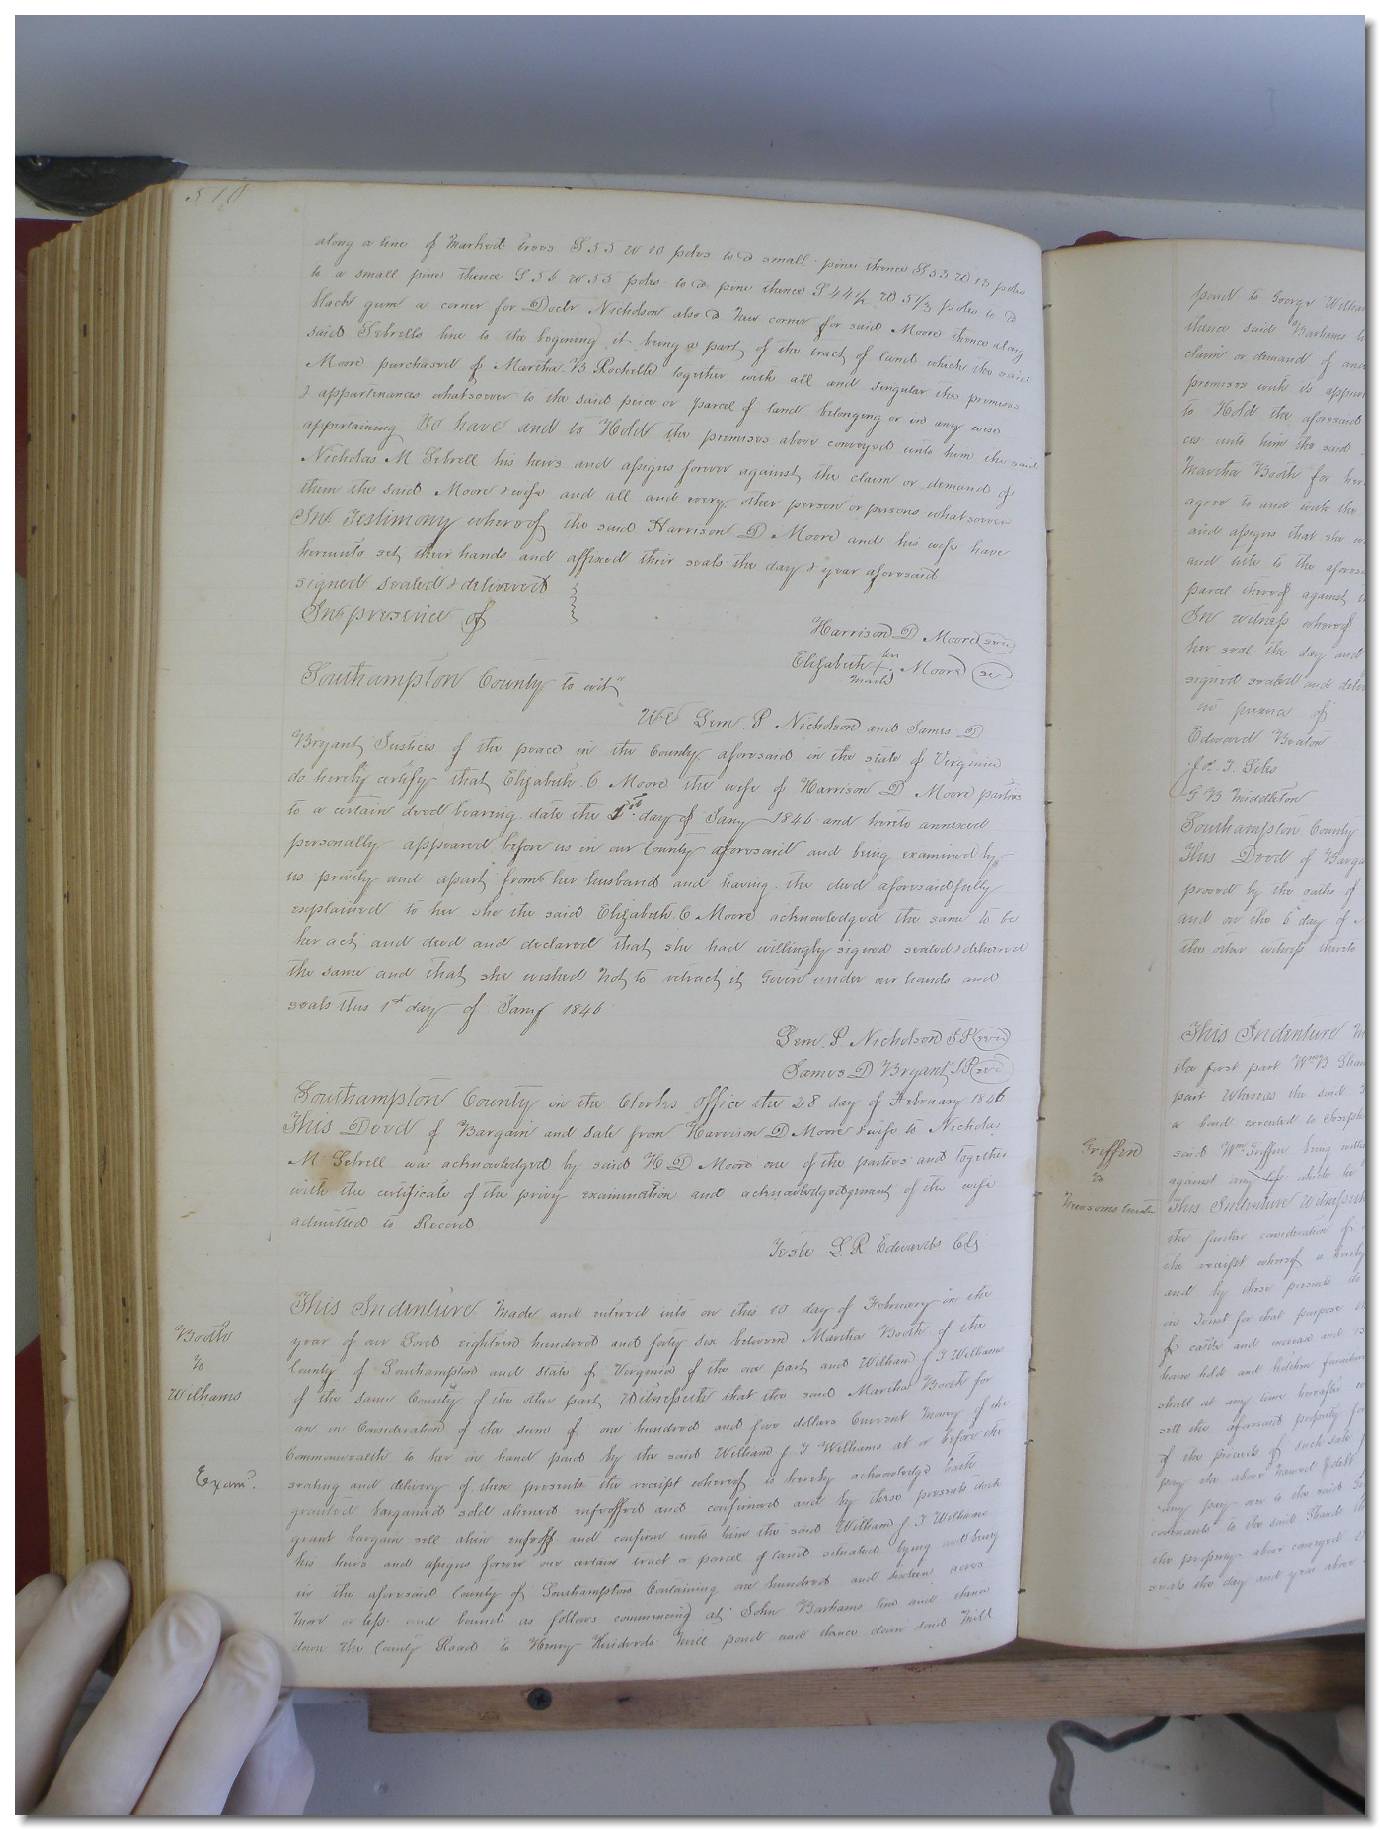 510
along a line of marked trees S 55 W 10 poles to a small pine thence S 53 W 13 poles
to a small pine thence S 56 W 55 poles to a pine thence S 44 1/2 W 5 1/3 poles to a
black gum a corner for Doctr Nicholson also a new corner for said Moore thence along
said Sebrells line to the begening it being a part of the tract of land which the said
Moore purchased of Martha B Rochelle together with all and singular the premises
& appartinances whatsoever to the said peice or parcel of land belonging or in any wise
appertaining To have and to Hold the premises above conveyed unto him the said
Nicholas M Sebrell his heirs and assigns forever against the claim or demand of
them the said Moore & wife and all and every other person or persons whatsoever
In Testimony whereof the said Harrison D Moore and his wife have
hereunto set their hands and affixed their seals the day & year aforesaid
signed sealed & delivered
In presence of
Harrison D Moore seal
her
Elizabeth + Moore se
mark
Southampton County to wit
We Jem. P Nicholson and James D
Bryant Justices of the peace in the County aforesaid in the state of Virginia
do hereby certify that Elizabeth C Moore the wife of Harrison D Moore parties
to a certain deed bearing date the 1st day of Jany 1846 and hereto annexed
personally appeared before us in our County aforesaid and being examined by
us privily and apart from her husband and having the deed aforesaid fully
explained to her she the said Elizabeth C Moore acknowledged the same to be
her act and deed and declared that she had willingly signed sealed & delivered
the same and that she wished not to retract it Given under our hands and
seals this 1st day of Jany 1846
Jem. P. Nicholson J P seal
James D Bryant J P seal
Southampton County in the Clerks office the 28 day of February 1846
This Deed of Bargain and Sale from Harrison D Moore & wife to Nicholas
M Sebrell was acknowledged by said H D Moore one of the parties and together
with the certificate of the privy examination and acknowledgedgment of the wife
admitted to Record
Teste L. R Edwards Clk
Booth
to
Williams
Exam?.
This Indenture made and entered into on this 10 day of February in the
year of our Lord eighteen hundred and forty six between Martha Booth of the
County of Southampton and State of Virginia of the one part and William J T Williams
of the same County of the other part Witnesseth that the said Martha Booth for
an in Consideration of the sum of one hundred and five dollars Current money of the
Commonwealth to her in hand paid by the said William J T Williams at or before the
sealing and delivery of these presents the receipt whereof is hereby acknowledge hath
granted bargained sold aliened enfeoffed and confirmed and by these presents doth
grant bargain sell alien enfeoff and confirm unto him the said William J T Williams
his heirs and assigns forever one certain tract or parcel of land situated lying and being
in the aforesaid County of Southampton Containing one hundred and sixteen acres
more or less and bound as follows commencing at John Barhams line and thence
down the County Road to Henry mill pond and thence down said mill
pond to George William
thence said Barhams li
claim or demand of an
premises with its appur
to Hold the aforesaid
ces unto him the said
Martha Booth for her
agree to and with the
and assigns that she w
and title to the aforesa
parcel thereof against
In witness whereof
her seal the day and
signed sealed and deliv
in presence of
Edward Beaton
Jos. T. Siles
G B Middleton
Southampton County
This Deed of Barga
proved by the oaths of
and on the 6 day of
the other witness thereto
Griffin
to
This Indenture
the first part Wm B Shan
part Whereas the said
a bond executed to Joseph
said Wm Griffin being willi
against any loss which he
This Indenture Witnesseth
the further consideration of
the receipt whereof is hereby
and by these presents do
in trust for that purpose
of cattle and increase and
have hold and
shall at any time hereafter
sell the aforesaid property for
of the proceeds of such sale
pay the above named debt
any pay over to the said
covenants to the said
the property above conveyed
seals the day and year above